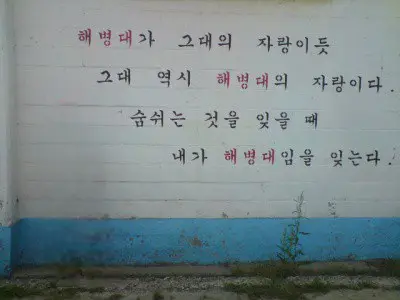 해병대가 그대의 자랑이듯
그대 역시 해병대의 자랑이다.
숨쉬는 것을 잊을 때
내가 해병대임을 잊는다.